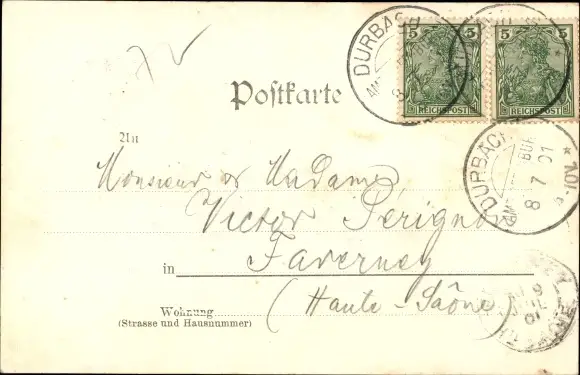 DURBACH
5 5
REICHSPOST REICHSPOST
Postkarte
An
DURBACH
8 7 01
Monsieur et Madame
Victor Perignon
in Faverney
(Haute-Saône)
Wohnung
(Strasse und Hausnummer)